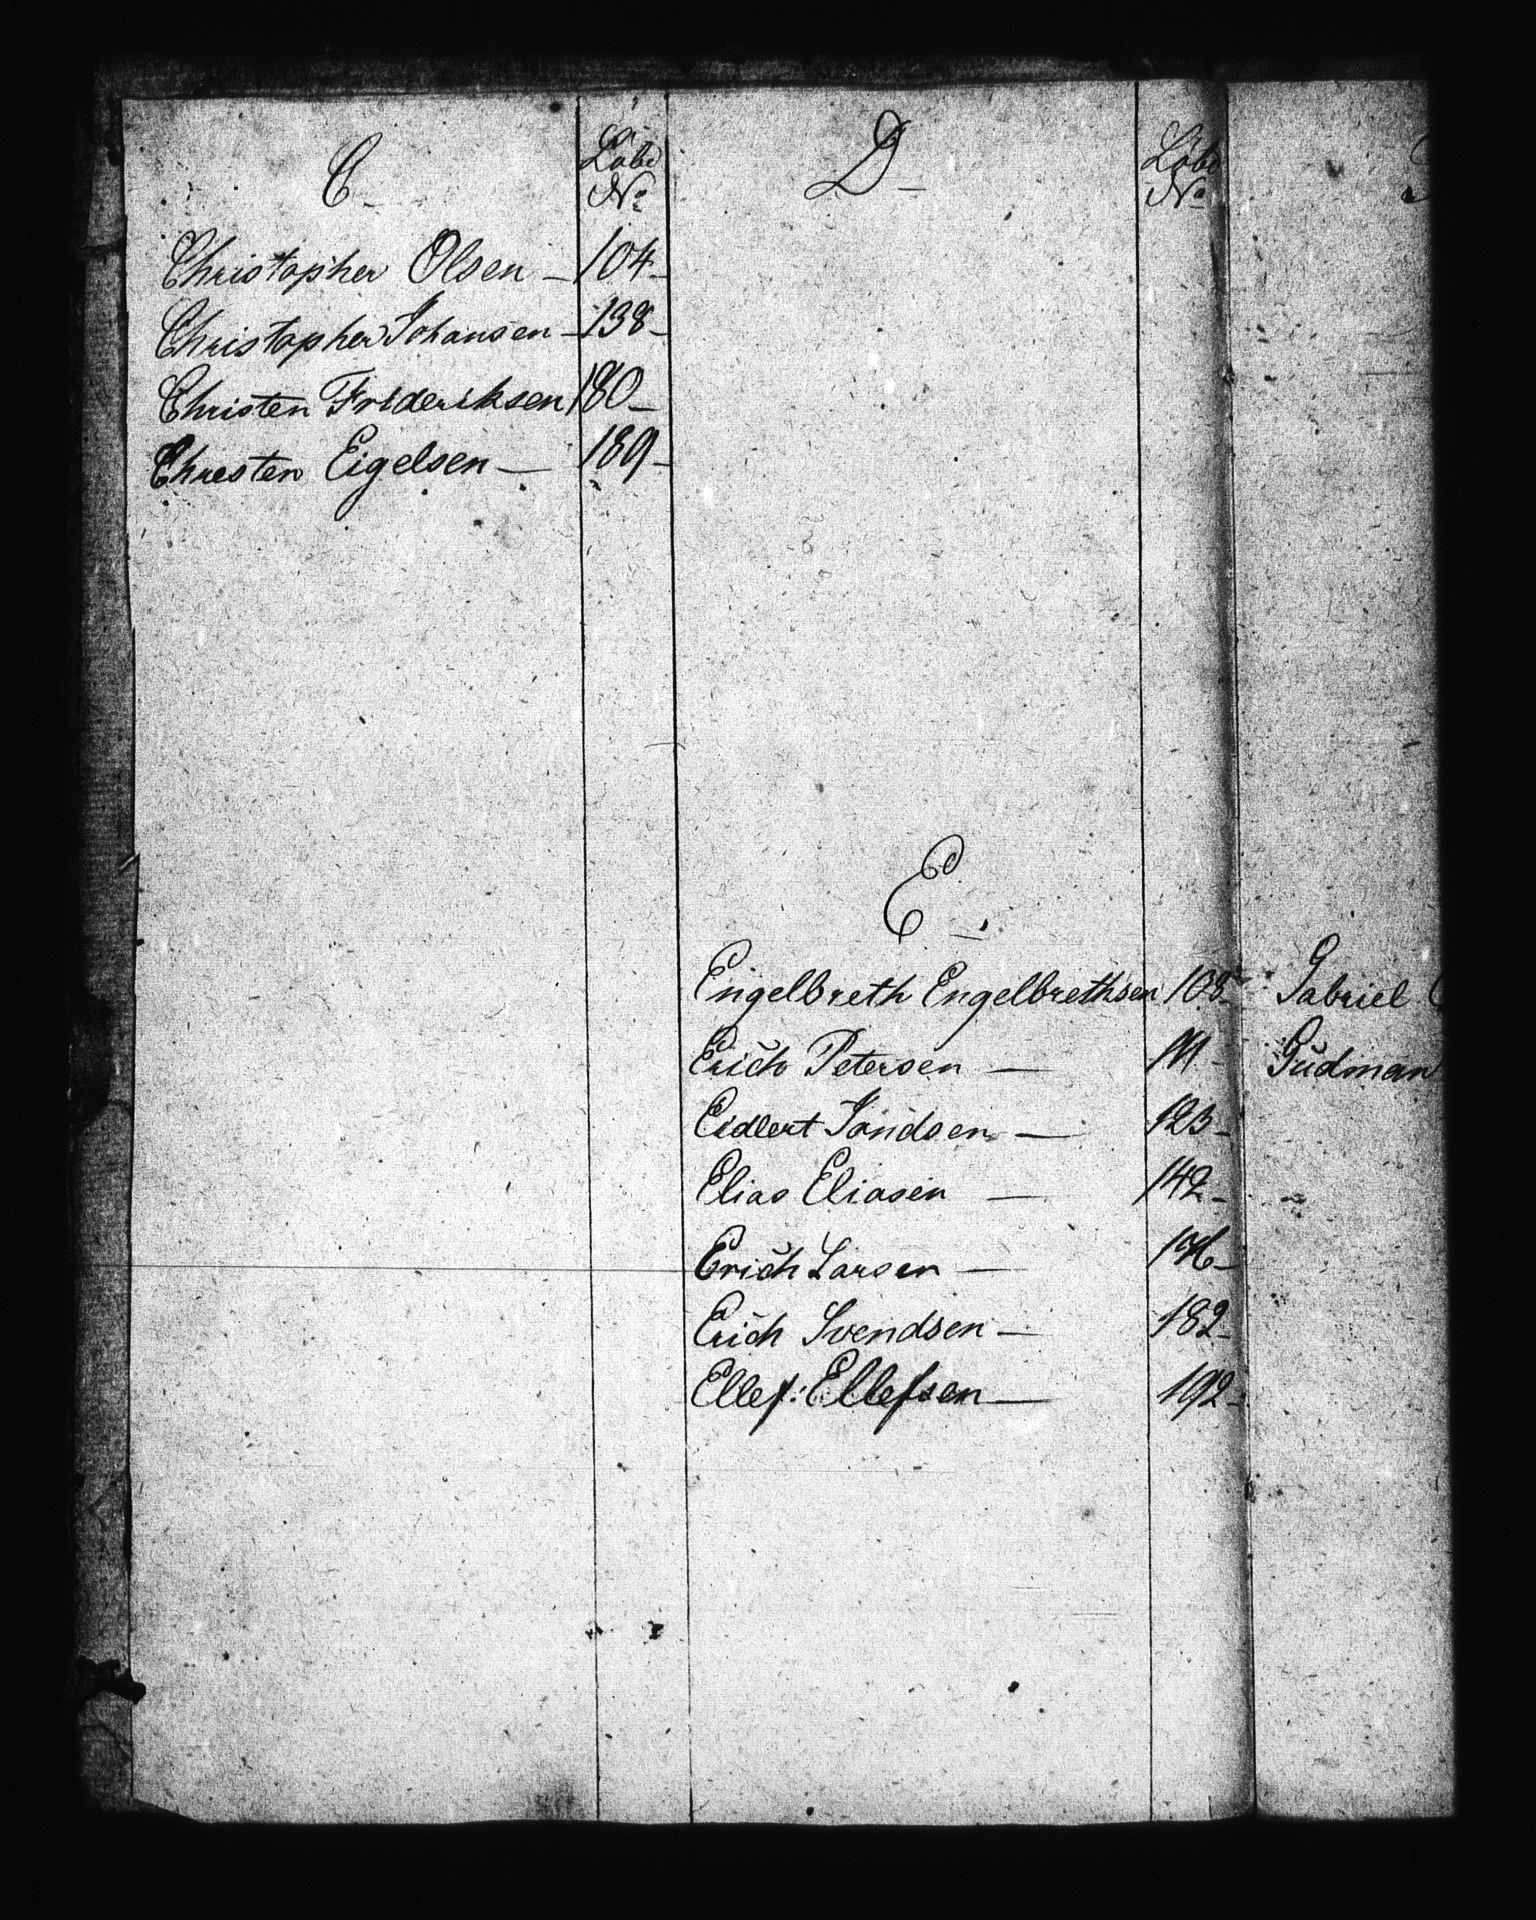 C
Löbe
No
Christopher Olsen — 104 —
Christopher Johansen — 138 —
Christen Frideriksen 180 —
Christen Eigelsen — 189 —
D —
Löbe
No
E —
Engelbreth Engelbrethsen 108 —
Erich Petersen — 111 —
Eidlert Jandsen — 123 —
Elias Eliasen — 142 —
Erich Larsen — 176 —
Erich Svendsen — 182 —
Ellef: Ellefsen — 192 —
Gabriel
Gudman